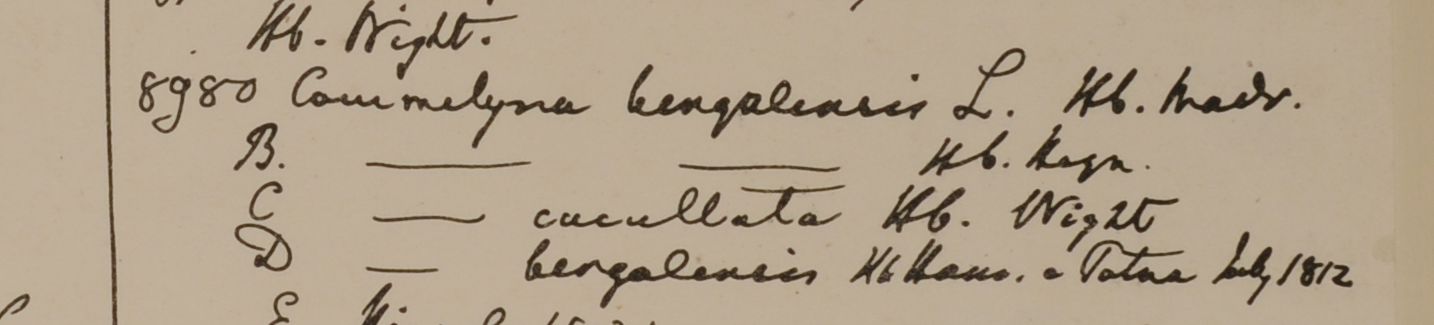 Hb. Wight.
8980 Commelyna bengalensis L. Hb. Madr.
B. — — Hb. Heyn.
C — cucullata Hb. Wight
D — bengalensis Hb Ham. e Patna July 1812
E